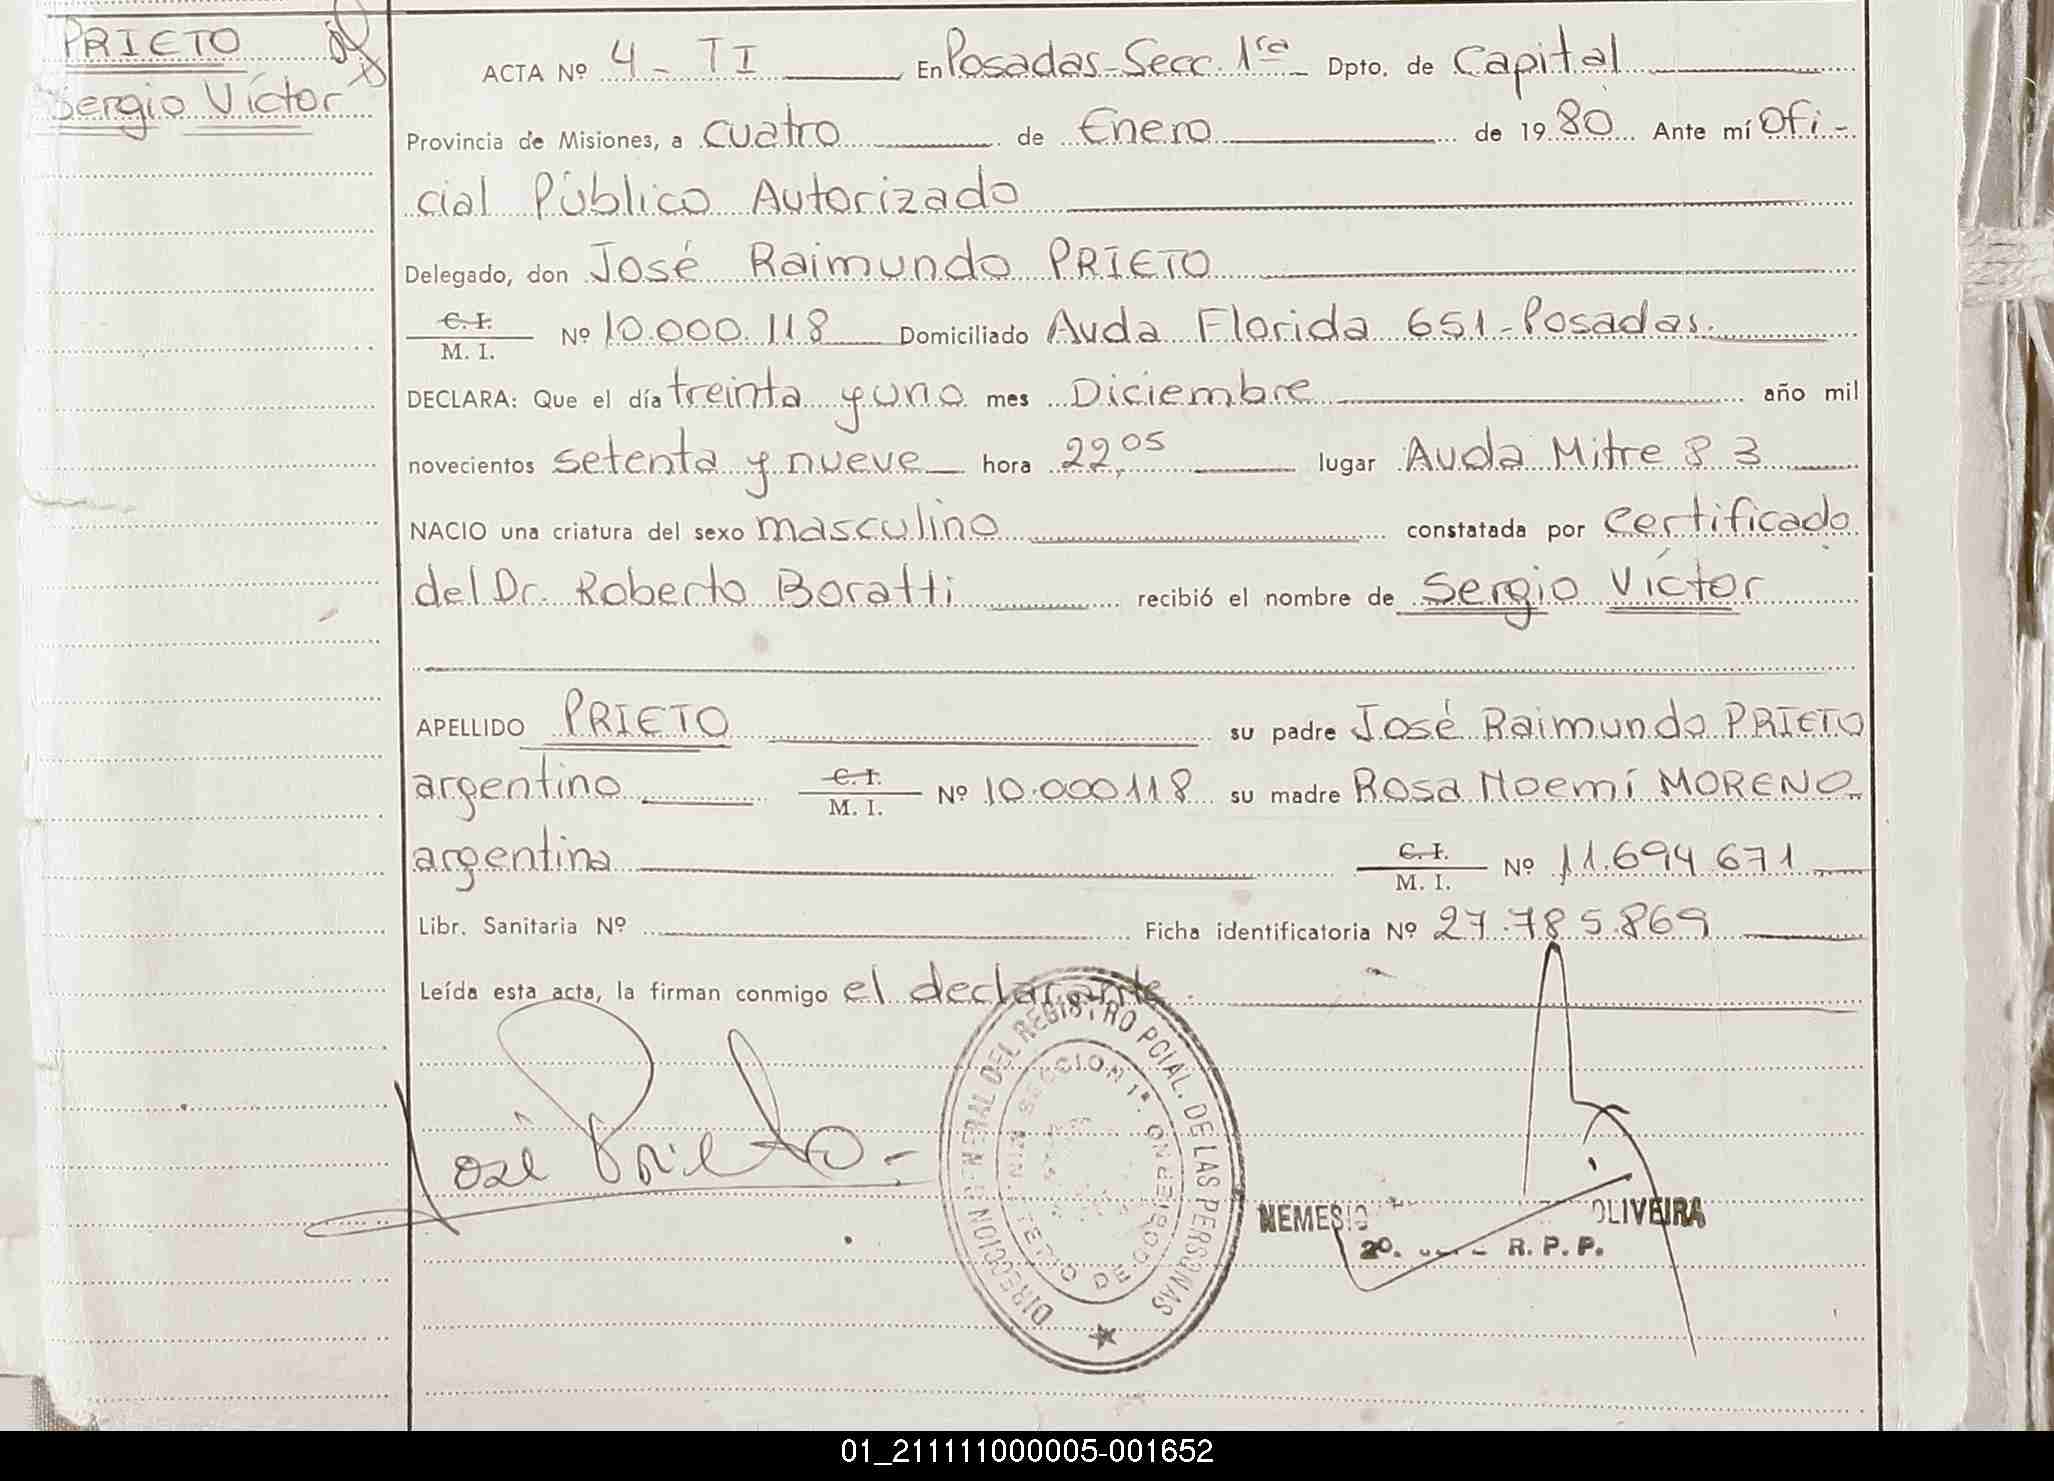 PRIETO
Sergio Víctor
ACTA Nº 4 - TI En Posadas - Secc. 1ra - Dpto. de Capital
Provincia de Misiones, a cuatro de Enero de 1980 Ante mí Ofi-
cial Público Autorizado
Delegado, don José Raimundo PRIETO
C. I.
M. I. Nº 10.000.118 Domiciliado Avda Florida 651 - Posadas.
DECLARA: Que el día treinta y uno mes Diciembre año mil
novecientos setenta y nueve hora 22,05 lugar Avda Mitre 83
NACIO una criatura del sexo masculino constatada por certificado
del Dr. Roberto Boratti recibió el nombre de Sergio Víctor
APELLIDO PRIETO su padre José Raimundo PRIETO
argentino C. I.
M. I. Nº 10.000118 su madre Rosa Noemí MORENO
argentina C. I.
M. I. Nº 11.694.671
Libr. Sanitaria Nº Ficha identificatoria Nº 27.785.869
Leída esta acta, la firman conmigo el declarante.
José Prieto.-
DIRECCION GENERAL DEL REGISTRO PCIAL. DE LAS PERSONAS
SECCION 1ª.
DE GOBIERNO
NEMESIO OLIVEIRA
2º. R. P. P.
01_211111000005-001652